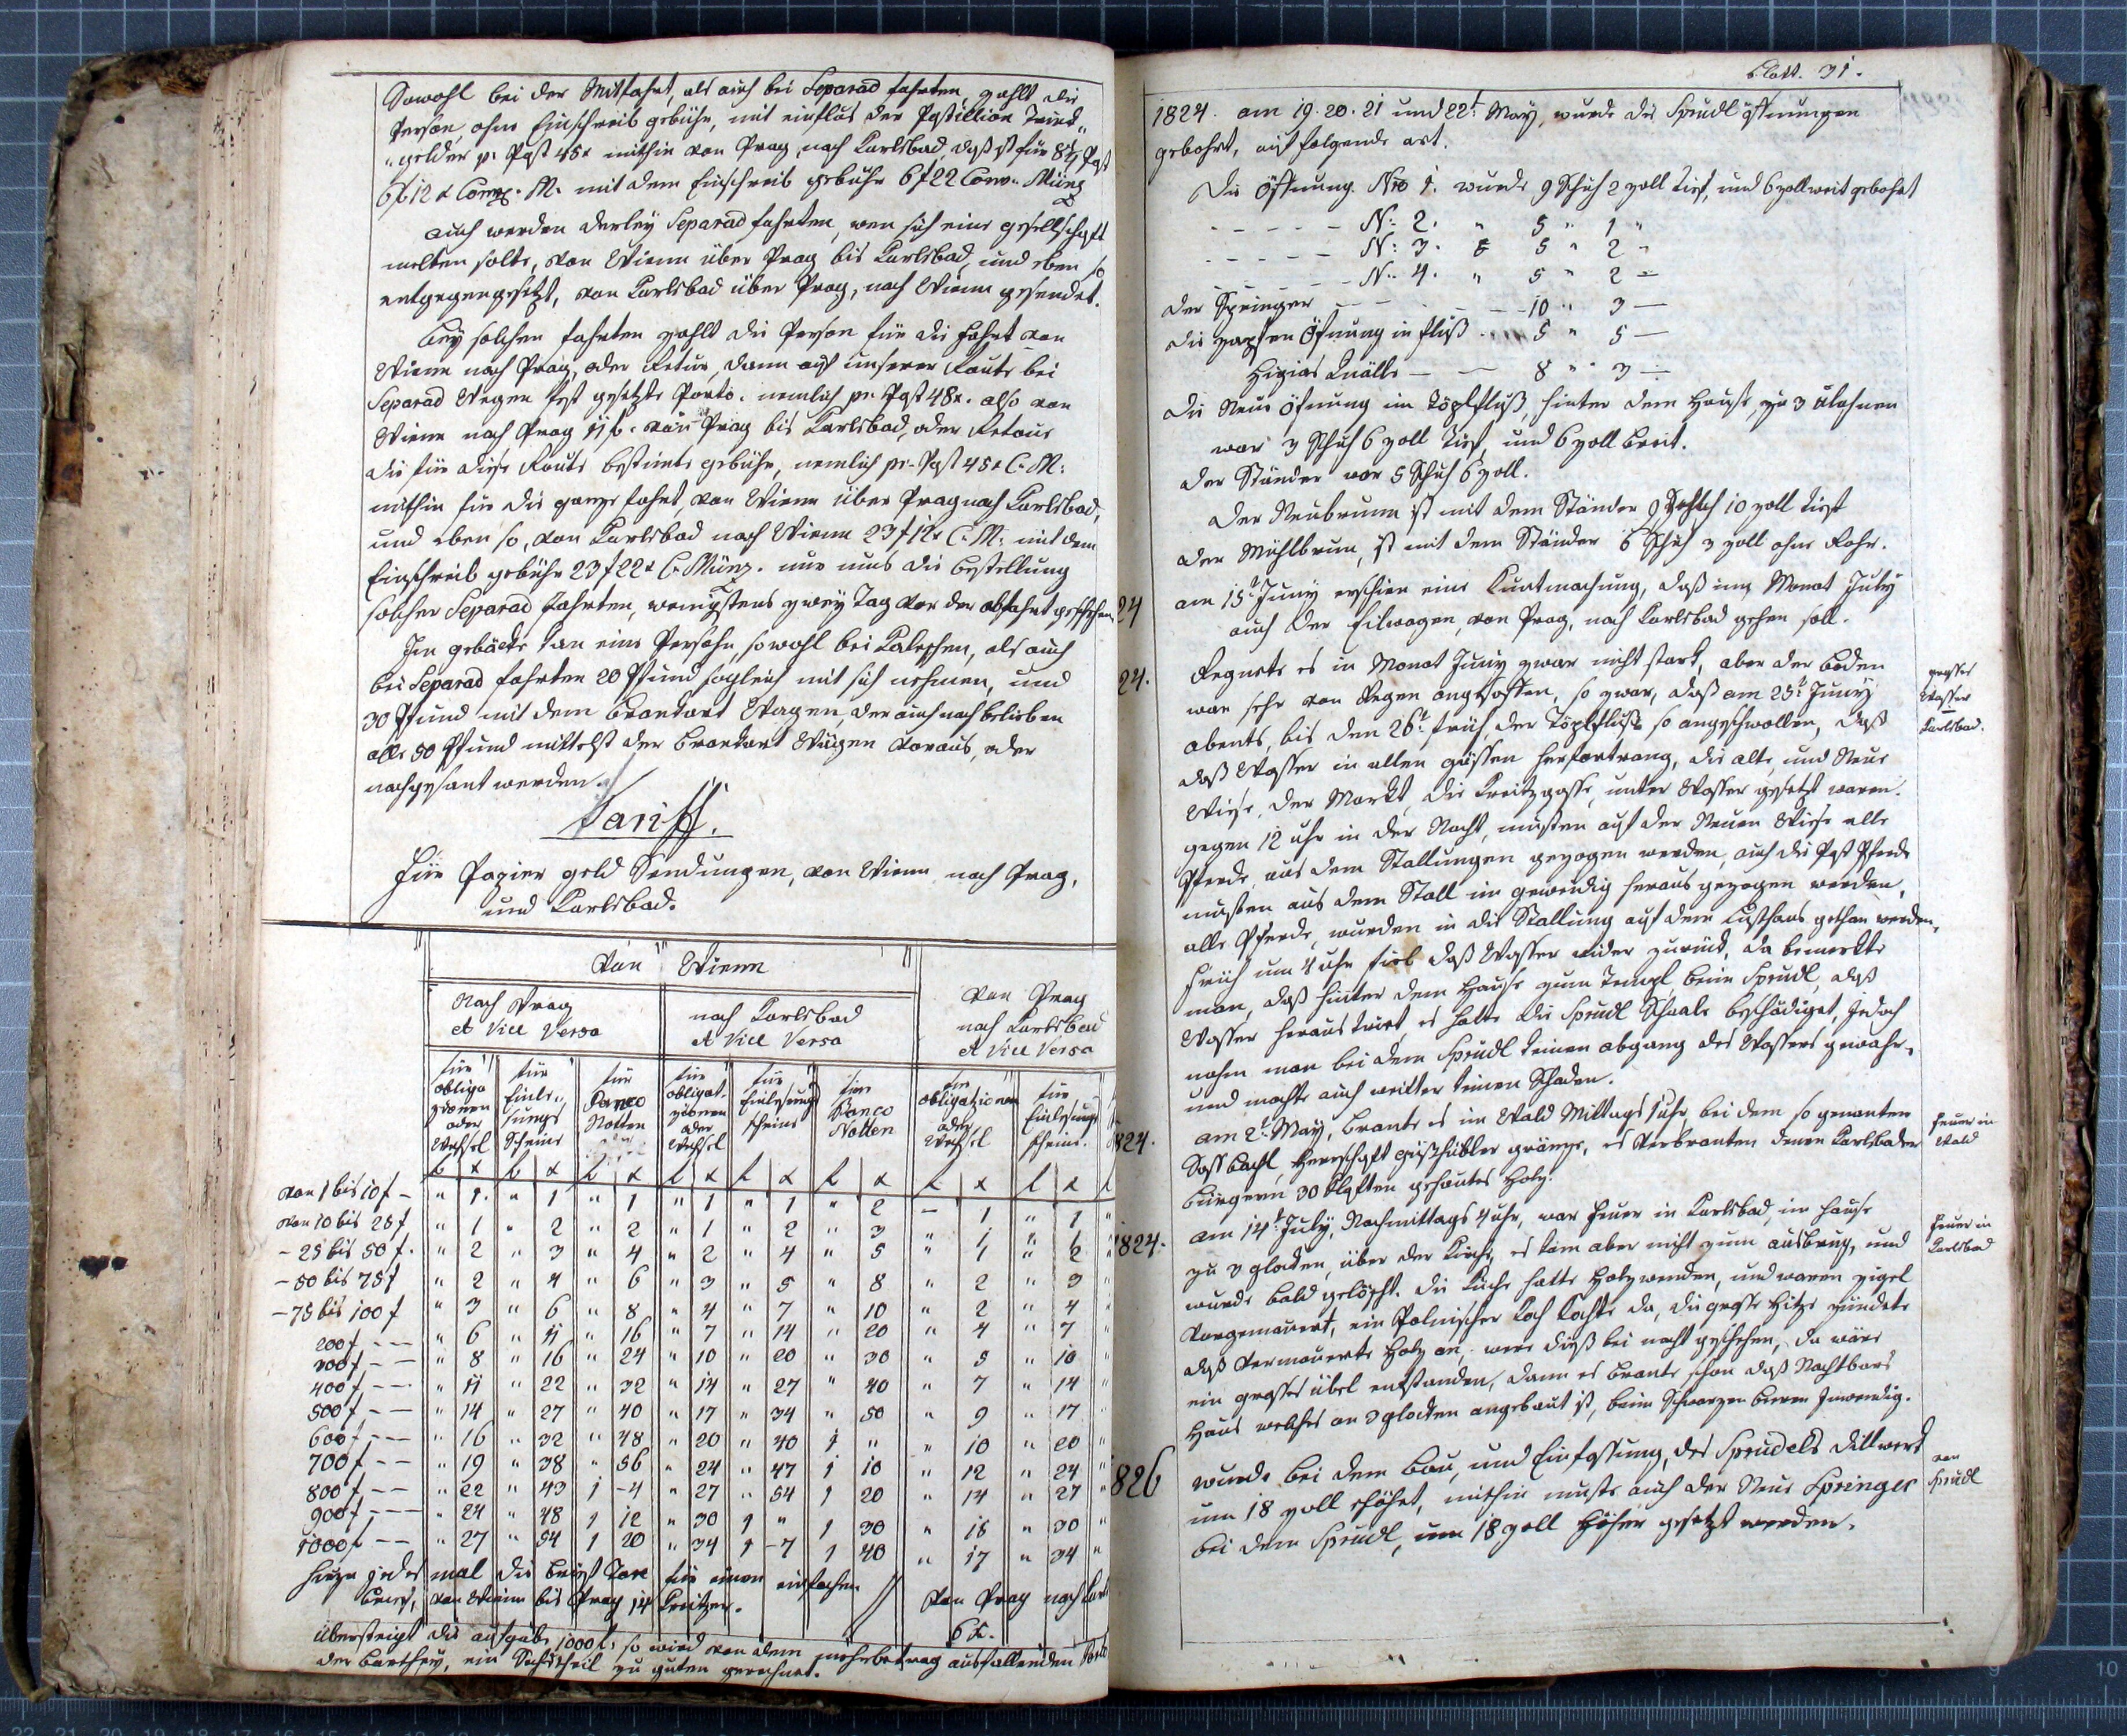 Sowohl bei der Mitfahrt, als auch bei Separad fahrten, zahlt die
Person ohne Einschreib gebühr, mit einfluß der Postillion Trink„
„gelder pr Post 45x mithin von Prag, nach Karlsbad, daß ist für 8¼ Post
6f 12x Conv. M. mit dem Einschreib gebühr 6f 22 Conv. Münz
auch werden derley Separad fahrten, wen sich eine gesellschaft
melden solte, von Wienn über Prag bis Karlsbad, und eben so
entgegengesetzt, von Karlsbad über Prag, nach Wienn gesendet.
bey solchen fahrten zahlt die Person für die fahrt von
Wienn nach Prag, oder Retur, dann auf unserer Route bei
Separad Wegen fest gesetzte Porto. nemlich pr. Post 48x. also von
Wienn nach Prag von Prag bis Karlsbad, oder Retour
die für diese Route bestimte gebühr, nemlich pr. Post 45x C. M:
mithin für die ganze fahrt, von Wienn über Prag nach Karlsbad,
und eben so, von Karlsbad nach Wienn 23f 12x C. M: mit dem
Einschreib gebühr 23f 22x C. Münz. nur mus die bestellung
solcher Separad fahrten, wenigstens zwey Tag vor der abfahrt geschehen
Im gebäcke kan eine Persohn, sowohl bei Kaleschen, als auch
bei Separad fahrten 20 Pfund sogleich mit sich nehmen, und
30 Pfund mit dem Brankart Wagen, der auch nach belieben
alle 50 Pfund mittelst der Brankart Wägen voraus, oder
nachgesant werden.
Tariff.
Für Papier geld Sendungen, von Wienn nach Prag,
und Karlsbad.
Von Wienn
Nach Prag et Vice Versa | nach Karlsbad et Vice Versa | Von Prag nach Karlsbad et Vice Versa
für obligazionen oder Wechsel | für Einlesungs Scheine | für Banco Notten | für obligat-zionen oder Wechsel | für Einlesungs scheine | für Banco Notten | für obligazionen oder Wechsel | für Einlesungs scheine.
f x f x f x f x f x f x f x f x
von 1 bis 10f - " 1 " 1 " 1 " 1 " 1 " 2 - 1 " 1
von 10 bis 25f " 1 " 2 " 2 " 1 " 2 " 3 " 1 " 1
- 25 bis 50f. " 2 " 3 " 4 " 2 " 4 " 5 " 1 " 2
- 50 bis 75f " 2 " 4 " 6 " 3 " 5 " 8 " 2 " 3
- 75 bis 100f " 3 " 6 " 8 " 4 " 7 " 10 " 2 " 4
200f - - " 6 " 11 " 16 " 7 " 14 " 20 " 4 " 7
300f - - " 8 " 16 " 24 " 10 " 20 " 30 " 5 " 10
400f - - " 11 " 22 " 32 " 14 " 27 " 40 " 7 " 14
500f - - " 14 " 27 " 40 " 17 " 34 " 50 " 9 " 17
600f - - " 16 " 32 " 48 " 20 " 40 1 " " 10 " 20
700f - - " 19 " 38 " 56 " 24 " 47 1 10 " 12 " 24
800f - - " 22 " 43 1 - 4 " 27 " 54 1 20 " 14 " 27
900f - - " 24 " 48 1 12 " 30 1 " 1 30 " 15 " 30
1000f - - " 27 " 54 1 20 " 34 1 - 7 1 40 " 17 " 34
hinzu jedes mal die brief Tax für einen einfachen
brief, von Wienn bis Prag 14 Kreitzer. Von Prag nach Karls
6 x.
übersteigt die aufgabe 1000f, so wird von dem mehrbetrag ausfallenden
der Barthey, ein Sechstheil zu guten gerechnet.
blatt. 31.
1824. am 19. 20. 21 und 22t May, wurde die Sprudl öffnungen
gebohrt, auf folgende art.
Die Öffnung Nro 1. wurde 9 Schuh 2 zoll tief, und 6 zoll weit gebohrt
- - - - - N: 2. " 5 " 1 "
- - - - - N: 3. " 5 " 2 "
- - - - - N: 4. " 5 " 2 -
der Springer - - - - - 10 " 3 -
die zapfen Öfnung in fluß . . . . 5 " 5 -
Higias Quälle - - 8 " 3 -
die Neue Öfnung im Töplfluß, hinter dem Hause, zu 3 Mohren
war 3 Schuh 6 zoll tief, und 6 zoll breit.
der Ständer war 5 Schuh 6 zoll.
der Neubrunn ist mit dem Ständer 9 Schuh 10 zoll tief
der Mühlbrun, ist mit dem Ständer 6 Schuh 3 zoll ohne Rohr.
24 am 15t Juny erschien eine Kuntmachung, daß im Monat July
auch der Eilwagen, von Prag, nach Karlsbad gehen soll.
24. Regnete es in Monat Juny zwar nicht stark, aber der boden
war sehr von Regen angesoffen, so zwar, daß am 25t Juny
abents, bis den 26t früh, der Töplfluß so angeschwollen, daß
daß Wasser in allen gässen herfortrang, die alte, und Neue
Wiese, der Markt, die Kreitzgasse, unter Wasser gesetzt waren.
gegen 12 uhr in der Nacht, musten auf der Neuen Wiese alle
Pferde, aus dem Stallungen gezogen werden, auch die Post Pferde
musten aus dem Stall im gewendig heraus gezogen werden,
alle Pferde, wurden in die Stallung auf dem Lusthaus gethan werden,
früh um 4 uhr fiel daß Wasser wider zurück, da bemerkte
man, daß hinter dem Hause zum Templ beim Sprudl, daß
Wasser heraus kümt, es hatte die Sprudl Schaale beschädiget, Jedoch
nahm man bei dem Sprudl keinen abgang des Wassers gewahr,
und machte auch weitter keinen Schaden.
grosses
Wasser
Karlsbad.
824. am 2t May, brante es im Wald Mittags 1 uhr, bei dem so genanten
Sossbachl, Herrschaft gießhübler gränze, es verbranten denen Karlsbader
bürgern 30 Klaften gehautes Holz.
feuer in
Wald
1824. am 14t July, Nachmittags 4 uhr, war feuer in Karlsbad, im Hause
zu 3 glocken, über der Kirche, es kam aber nicht zum ausbruch, und
wurde bald gelöscht. die Küche hatte Holzwenden, und waren zigel
vorgemauert, ein Polnischer Koch kochte da, die grosse Hitze zündete
daß vermauerte Holz an, were dieß bei nacht geschehen, da wäre
ein grosses übel entstanden, dann es brante schon daß Nachtbars
Haus welches an 3 glocken angebaut ist, beim Schwarzen beeren Innwendig.
feuer in
Karlsbad
826 wurde bei dem bau, und Einfassung, des Sprudels dillwerk
um 18 zoll erhöhet, mithin muste auch der Neue Springer
bei dem Sprudl, um 18 zoll höher gesetzt werden.
von
Sprudl